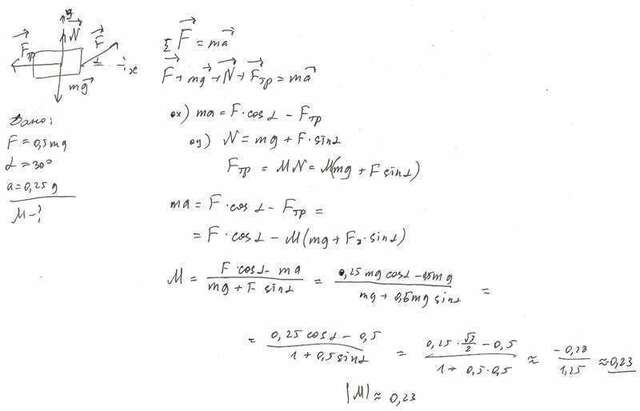 y
N
F
Fтр
α
x
mg
Дано:
F = 0,5mg
α = 30°
a = 0,25g
M - ?
Σ F = ma
F + mg + N + Fтр = ma
ox) ma = F · cos α - Fтр
oy) N = mg + F · sin α
Fтр = MN = M(mg + F sin α)
ma = F · cos α - Fтр =
= F · cos α - M(mg + F · sin α)
M = (F cos α - ma) / (mg + F · sin α) = (0,25 mg cos α - 0,5mg) / (mg + 0,5mg sin α) =
= (0,25 cos α - 0,5) / (1 + 0,5 sin α) = (0,25 · √3/2 - 0,5) / (1 + 0,5 · 0,5) ≈ (-0,28) / 1,25 ≈ 0,23
|M| ≈ 0,23